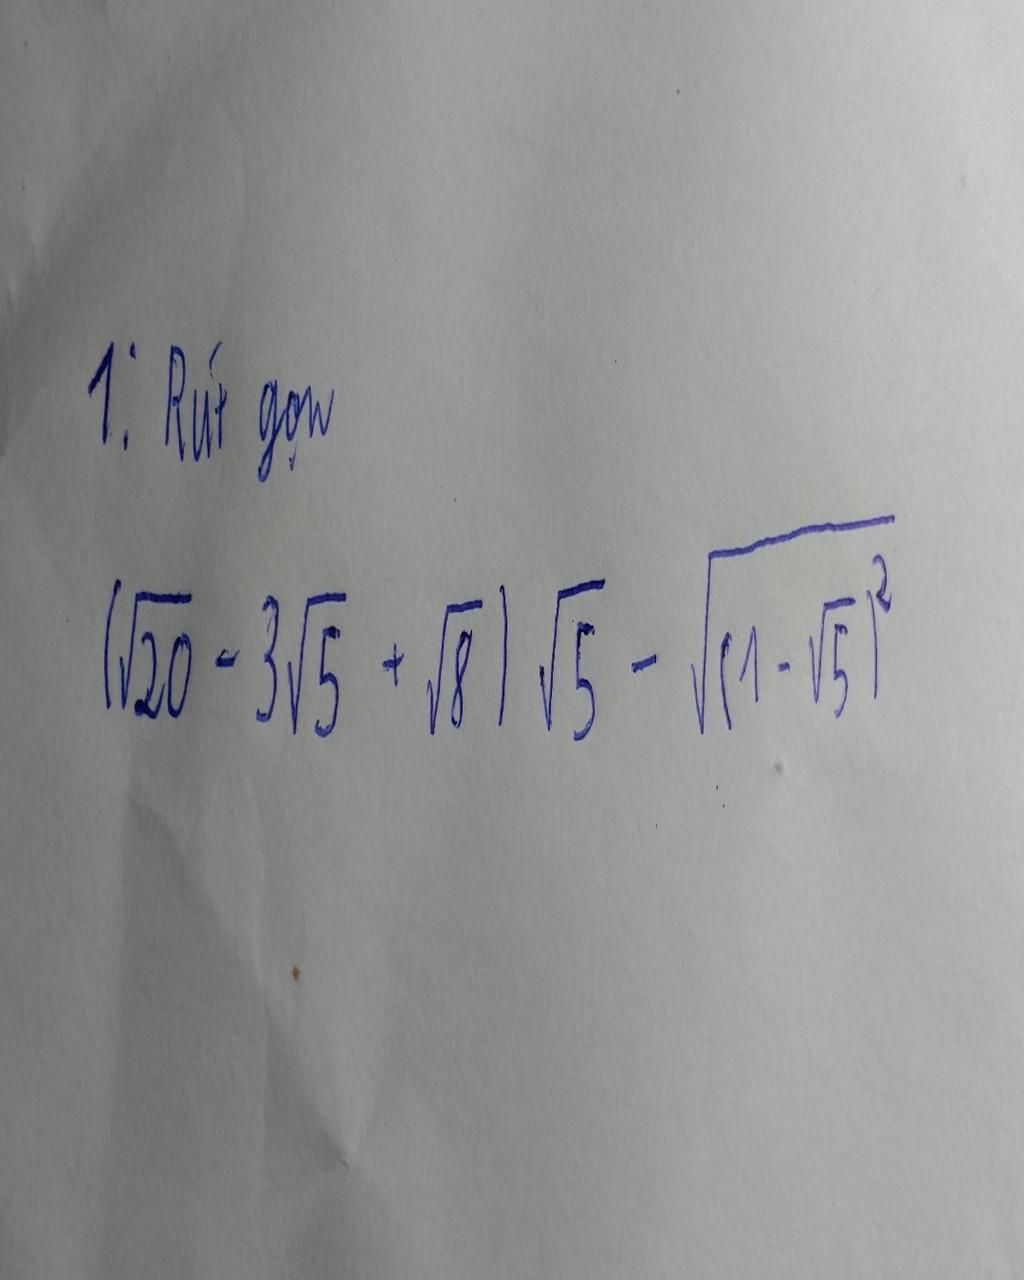 1. Rút gọn
(√20 - 3√5 + √8) √5 - √(1 - √5)²